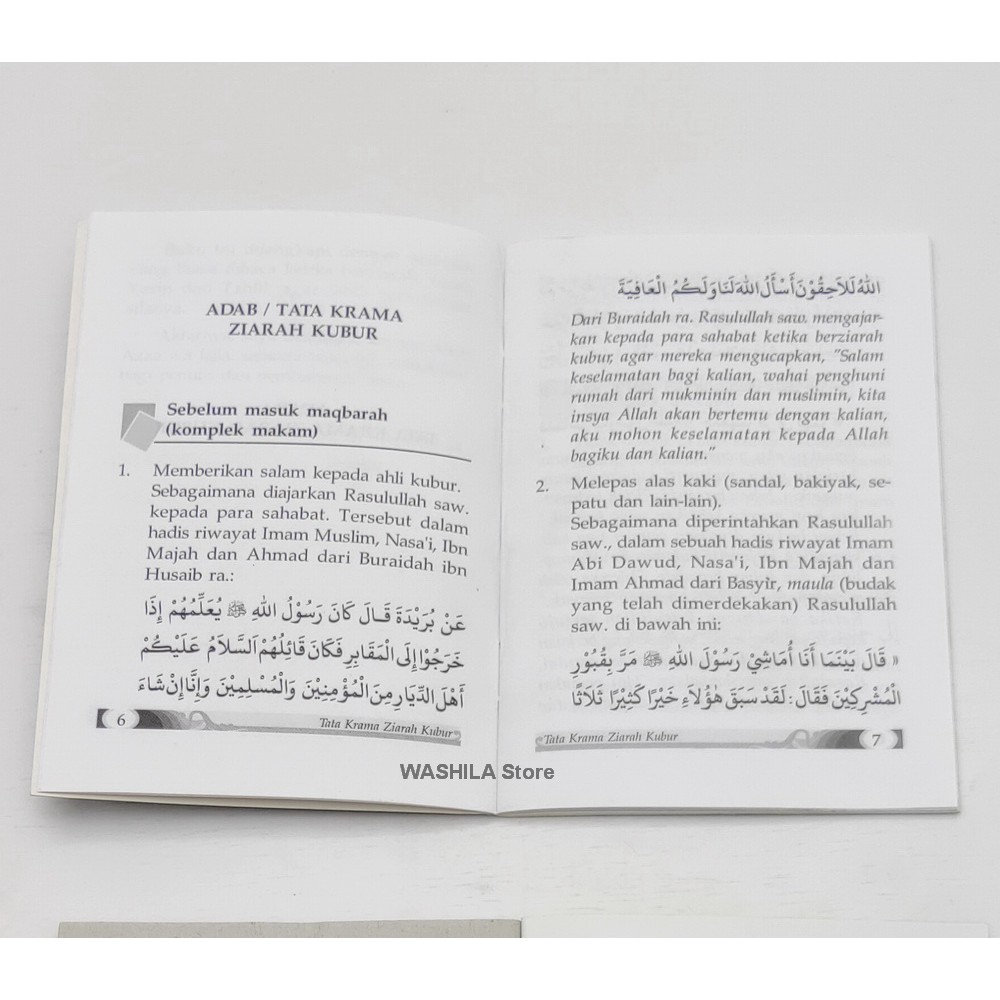 ADAB / TATA KRAMA
ZIARAH KUBUR
Sebelum masuk maqbarah
(komplek makam)
1. Memberikan salam kepada ahli kubur.
Sebagaimana diajarkan Rasulullah saw.
kepada para sahabat. Tersebut dalam
hadis riwayat Imam Muslim, Nasa'i, Ibn
Majah dan Ahmad dari Buraidah ibn
Husaib ra.:
عَنْ بُرَيْدَةَ قَالَ كَانَ رَسُوْلُ اللهِ ﷺ يُعَلِّمُهُمْ إِذَا
خَرَجُوْا إِلَى الْمَقَابِرِ فَكَانَ قَائِلُهُمْ اَلسَّلَامُ عَلَيْكُمْ
أَهْلَ الدِّيَارِ مِنَ الْمُؤْمِنِيْنَ وَالْمُسْلِمِيْنَ وَإِنَّا إِنْ شَاءَ
6 Tata Krama Ziarah Kubur
اللهُ لَلاَحِقُوْنَ أَسْأَلُ اللهَ لَنَا وَلَكُمُ الْعَافِيَةَ
Dari Buraidah ra. Rasulullah saw. mengajar-
kan kepada para sahabat ketika berziarah
kubur, agar mereka mengucapkan, "Salam
keselamatan bagi kalian, wahai penghuni
rumah dari mukminin dan muslimin, kita
insya Allah akan bertemu dengan kalian,
aku mohon keselamatan kepada Allah
bagiku dan kalian."
2. Melepas alas kaki (sandal, bakiyak, se-
patu dan lain-lain).
Sebagaimana diperintahkan Rasulullah
saw., dalam sebuah hadis riwayat Imam
Abi Dawud, Nasa'i, Ibn Majah dan
Imam Ahmad dari Basyir, maula (budak
yang telah dimerdekakan) Rasulullah
saw. di bawah ini:
« قَالَ بَيْنَمَا أَنَا أُمَاشِيْ رَسُوْلَ اللهِ ﷺ مَرَّ بِقُبُوْرِ
الْمُشْرِكِيْنَ فَقَالَ : لَقَدْ سَبَقَ هٰؤُلَاءِ خَيْرًا كَثِيْرًا ثَلَاثًا
Tata Krama Ziarah Kubur 7
WASHILA Store